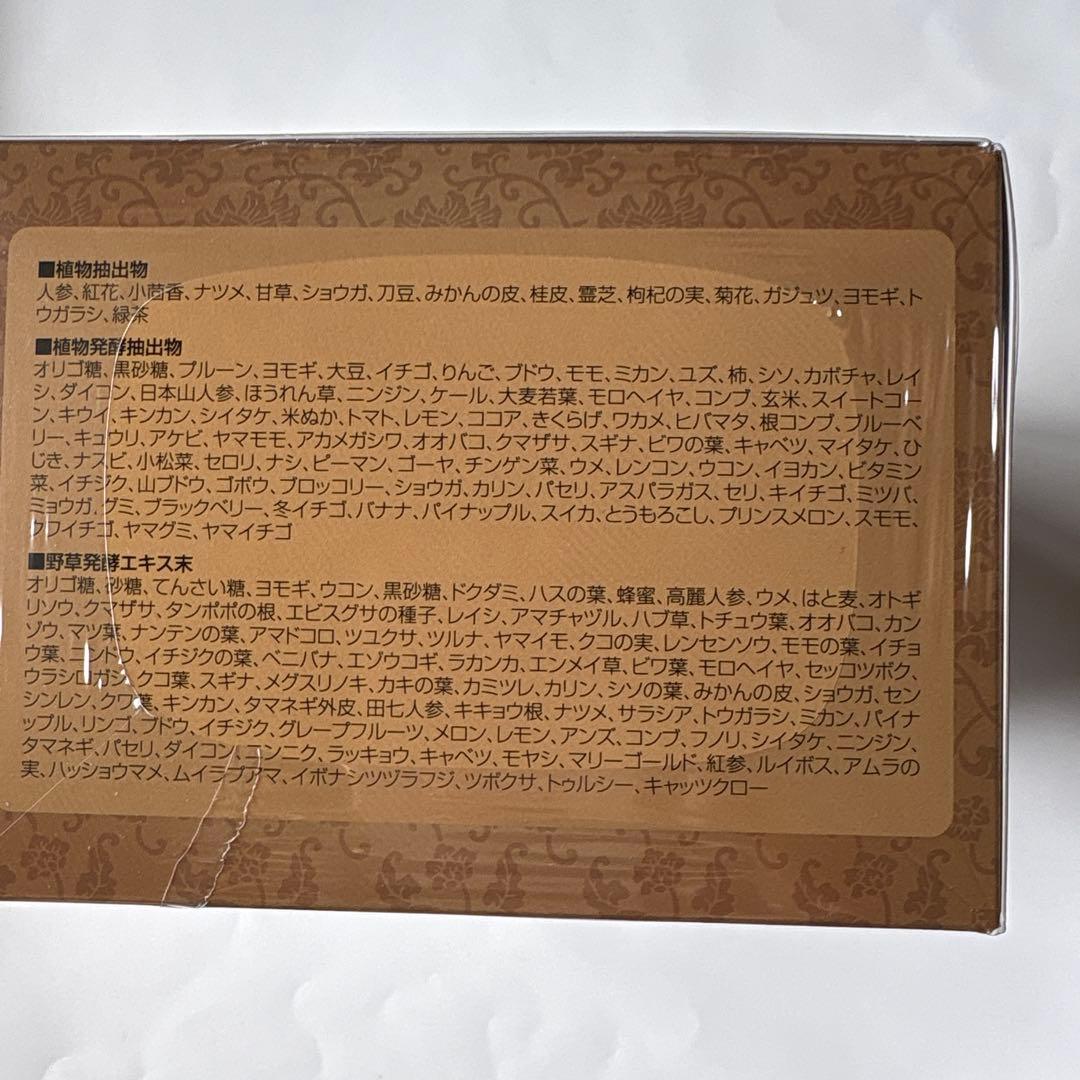 ■植物抽出物
人参、紅花、小茴香、ナツメ、甘草、ショウガ、刀豆、みかんの皮、桂皮、霊芝、枸杞の実、菊花、ガジュツ、ヨモギ、ト
ウガラシ、緑茶
■植物発酵抽出物
オリゴ糖、黒砂糖、プルーン、ヨモギ、大豆、イチゴ、りんご、ブドウ、モモ、ミカン、ユズ、柿、シソ、カボチャ、レイ
シ、ダイコン、日本山人参、ほうれん草、ニンジン、ケール、大麦若葉、モロヘイヤ、コンブ、玄米、スイートコー
ン、キウイ、キンカン、シイタケ、米ぬか、トマト、レモン、ココア、きくらげ、ワカメ、ヒバマタ、根コンブ、ブルーベ
リー、キュウリ、アケビ、ヤマモモ、アカメガシワ、オオバコ、クマザサ、スギナ、ビワの葉、キャベツ、マイタケ、ひ
じき、ナスビ、小松菜、セロリ、ナシ、ピーマン、ゴーヤ、チンゲン菜、ウメ、レンコン、ウコン、イヨカン、ビタミン
菜、イチジク、山ブドウ、ゴボウ、ブロッコリー、ショウガ、カリン、パセリ、アスパラガス、セリ、キイチゴ、ミツバ、
ミョウガ、グミ、ブラックベリー、冬イチゴ、バナナ、パイナップル、スイカ、とうもろこし、プリンスメロン、スモモ、
クワイチゴ、ヤマグミ、ヤマイチゴ
■野草発酵エキス末
オリゴ糖、砂糖、てんさい糖、ヨモギ、ウコン、黒砂糖、ドクダミ、ハスの葉、蜂蜜、高麗人参、ウメ、はと麦、オトギ
リソウ、クマザサ、タンポポの根、エビスグサの種子、レイシ、アマチャヅル、ハブ草、トチュウ葉、オオバコ、カン
ゾウ、マツ葉、ナンテンの葉、アマドコロ、ツユクサ、ツルナ、ヤマイモ、クコの実、レンセンソウ、モモの葉、イチョ
ウ葉、ニンドウ、イチジクの葉、ベニバナ、エゾウコギ、ラカンカ、エンメイ草、ビワ葉、モロヘイヤ、セッコツボク、
ウラジロガシ、クコ葉、スギナ、メグスリノキ、カキの葉、カミツレ、カリン、シソの葉、みかんの皮、ショウガ、セン
シンレン、クワ葉、キンカン、タマネギ外皮、田七人参、キキョウ根、ナツメ、サラシア、トウガラシ、ミカン、パイナ
ップル、リンゴ、ブドウ、イチジク、グレープフルーツ、メロン、レモン、アンズ、コンブ、フノリ、シイタケ、ニンジン、
タマネギ、パセリ、ダイコン、ニンニク、ラッキョウ、キャベツ、モヤシ、マリーゴールド、紅参、ルイボス、アムラの
実、ハッショウマメ、ムイラプアマ、イボナシツヅラフジ、ツボクサ、トゥルシー、キャッツクロー